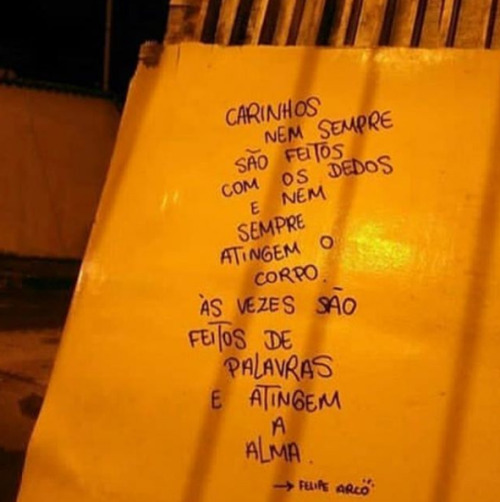 CARINHOS
NEM SEMPRE
SÃO FEITOS
COM OS DEDOS
E NEM
SEMPRE
ATINGEM O
CORPO.
ÀS VEZES SÃO
FEITOS DE
PALAVRAS
E ATINGEM
A
ALMA.
→ FELIPE ARCO